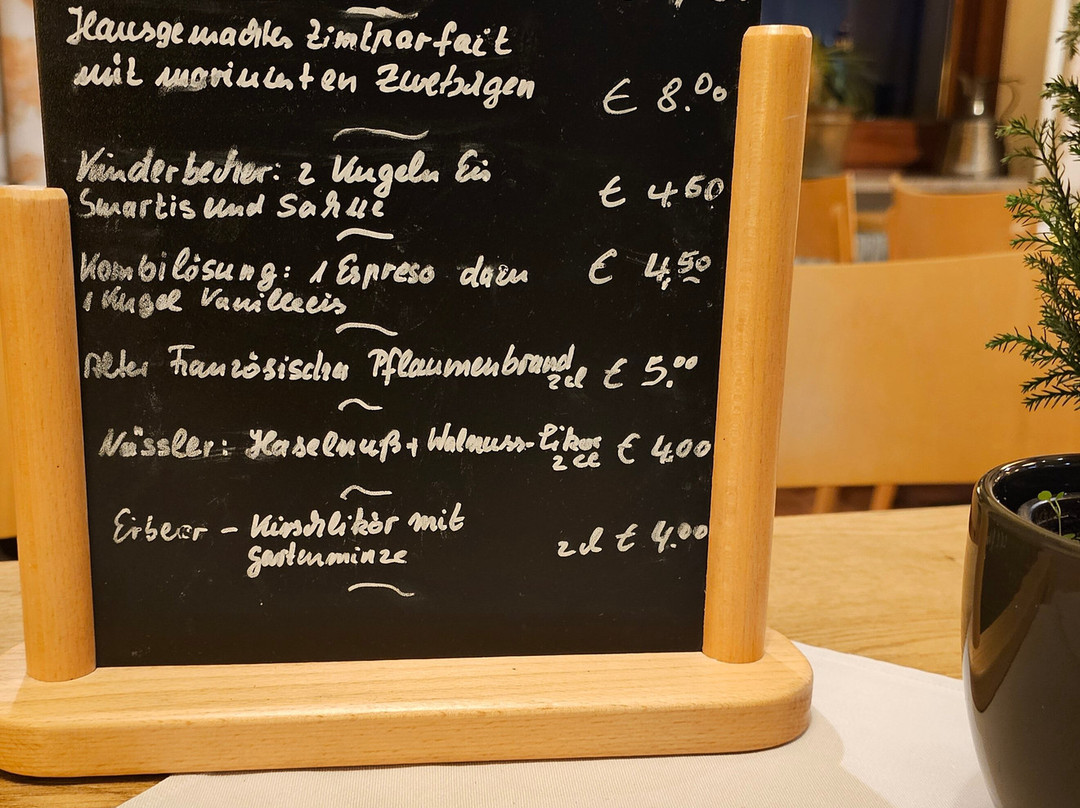 Hausgemachtes Zimtparfait
mit marinierten Zwetsxgen € 8.00
Kinderbecher: 2 Kugeln Eis
Smartis und Sahne € 4,50
Kombilösung: 1 Espreso dazu € 4,50
1 Kugel Vanilleeis
Alter Französischer Pflaumenbrand
2cl € 5.00
Nüssler: Haselnuß + Walnuss-Likör
2 cl € 4,00
Erbeer - Kirschlikör mit
gartenminze 2cl € 4.00